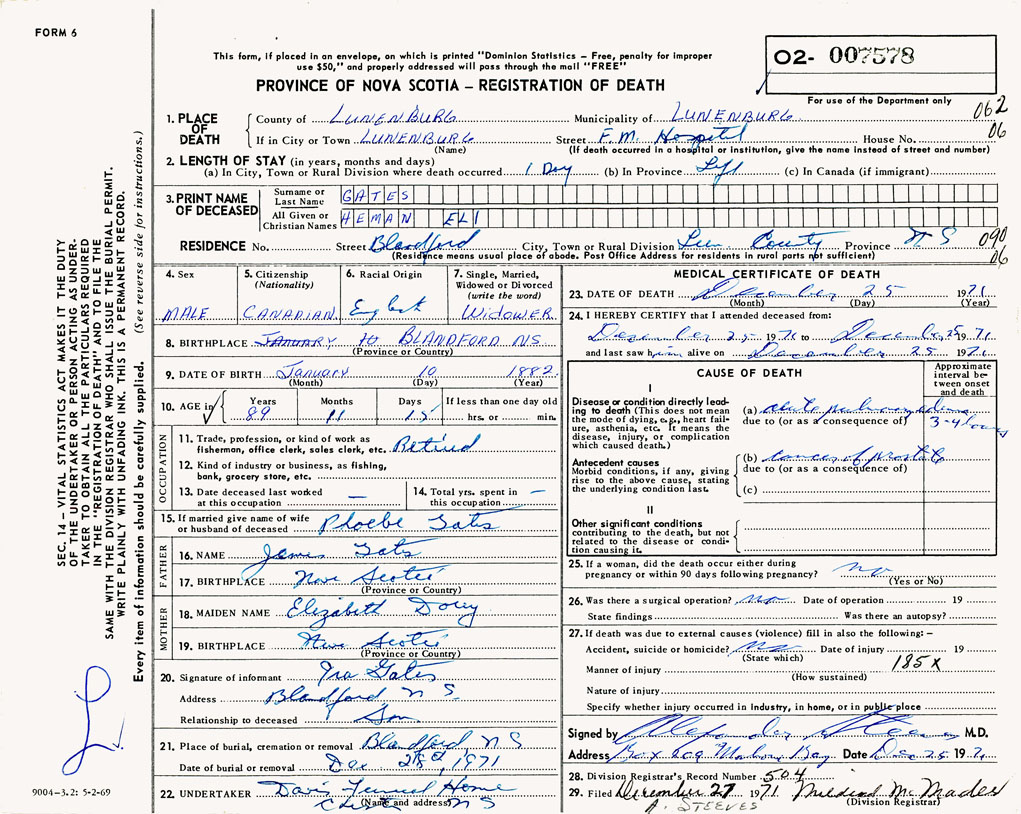 FORM 6
This form, if placed in an envelope, on which is printed "Dominion Statistics – Free, penalty for improper
use $50," and properly addressed will pass through the mail "FREE"
PROVINCE OF NOVA SCOTIA – REGISTRATION OF DEATH
02- 007578
For use of the Department only
062
06
1. PLACE OF DEATH
County of LUNENBURG Municipality of LUNENBURG
If in City or Town LUNENBURG Street F.M. Hospital House No.
(Name) (If death occurred in a hospital or institution, give the name instead of street and number)
2. LENGTH OF STAY (in years, months and days)
(a) In City, Town or Rural Division where death occurred 1 Day (b) In Province Life (c) In Canada (if immigrant)
3. PRINT NAME OF DECEASED
Surname or Last Name GATES
All Given or Christian Names HEMAN ELI
RESIDENCE No. Street Blandford City, Town or Rural Division Lun County Province N S 090
06
(Residence means usual place of abode. Post Office Address for residents in rural parts not sufficient)
4. Sex
MALE
5. Citizenship
(Nationality)
CANADIAN
6. Racial Origin
English
7. Single, Married,
Widowed or Divorced
(write the word)
WIDOWER
8. BIRTHPLACE January 10 BLANDFORD NS
(Province or Country)
9. DATE OF BIRTH January 10 1882
(Month) (Day) (Year)
10. AGE in
Years Months Days If less than one day old
89 11 15 hrs. or min.
OCCUPATION
11. Trade, profession, or kind of work as
fisherman, office clerk, sales clerk, etc. Retired
12. Kind of industry or business, as fishing,
bank, grocery store, etc.
13. Date deceased last worked
at this occupation —
14. Total yrs. spent in
this occupation —
15. If married give name of wife
or husband of deceased Phoebe Gates
FATHER
16. NAME James Gates
17. BIRTHPLACE Nova Scotia
(Province or Country)
MOTHER
18. MAIDEN NAME Elizabeth Dorey
19. BIRTHPLACE Nova Scotia
(Province or Country)
20. Signature of informant Ira Gates
Address Blandford N S.
Relationship to deceased Son
21. Place of burial, cremation or removal Blandford N S
Date of burial or removal Dec 28th, 1971
22. UNDERTAKER Davis Funeral Home
Chester N S
(Name and address)
MEDICAL CERTIFICATE OF DEATH
23. DATE OF DEATH December 25 1971
(Month) (Day) (Year)
24. I HEREBY CERTIFY that I attended deceased from:
December 25 1971 to December 25 1971
and last saw him alive on December 25 1971
CAUSE OF DEATH
Approximate
interval be-
tween onset
and death
I
Disease or condition directly lead-
ing to death (This does not mean
the mode of dying, e.g., heart fail-
ure, asthenia, etc. It means the
disease, injury, or complication
which caused death.)
(a) acute pulmonary edema
3-4 hours
due to (or as a consequence of)
Antecedent causes
Morbid conditions, if any, giving
rise to the above cause, stating
the underlying condition last.
(b) cancer of prostate
due to (or as a consequence of)
(c)
II
Other significant conditions
contributing to the death, but not
related to the disease or condi-
tion causing it.
25. If a woman, did the death occur either during
pregnancy or within 90 days following pregnancy? no
(Yes or No)
26. Was there a surgical operation? no Date of operation 19
State findings Was there an autopsy?
27. If death was due to external causes (violence) fill in also the following: –
Accident, suicide or homicide? no Date of injury 19
(State which)
Manner of injury 185 X
(How sustained)
Nature of injury
Specify whether injury occurred in industry, in home, or in public place
Signed by M.D.
Address Box 209 Mahone Bay Date Dec 25 1971
28. Division Registrar's Record Number 504
29. Filed December 27 1971 Mildred McMades
A. STEEVES
(Division Registrar)
SEC. 14 – VITAL STATISTICS ACT MAKES IT THE DUTY
OF THE UNDERTAKER OR PERSON ACTING AS UNDER-
TAKER TO OBTAIN ALL THE PARTICULARS REQUIRED
IN THE "REGISTRATION OF DEATH" AND TO FILE THE
SAME WITH THE DIVISION REGISTRAR WHO SHALL ISSUE THE BURIAL PERMIT.
WRITE PLAINLY WITH UNFADING INK. THIS IS A PERMANENT RECORD.
Every item of information should be carefully supplied. (See reverse side for instructions.)
9004-3.2: 5-2-69